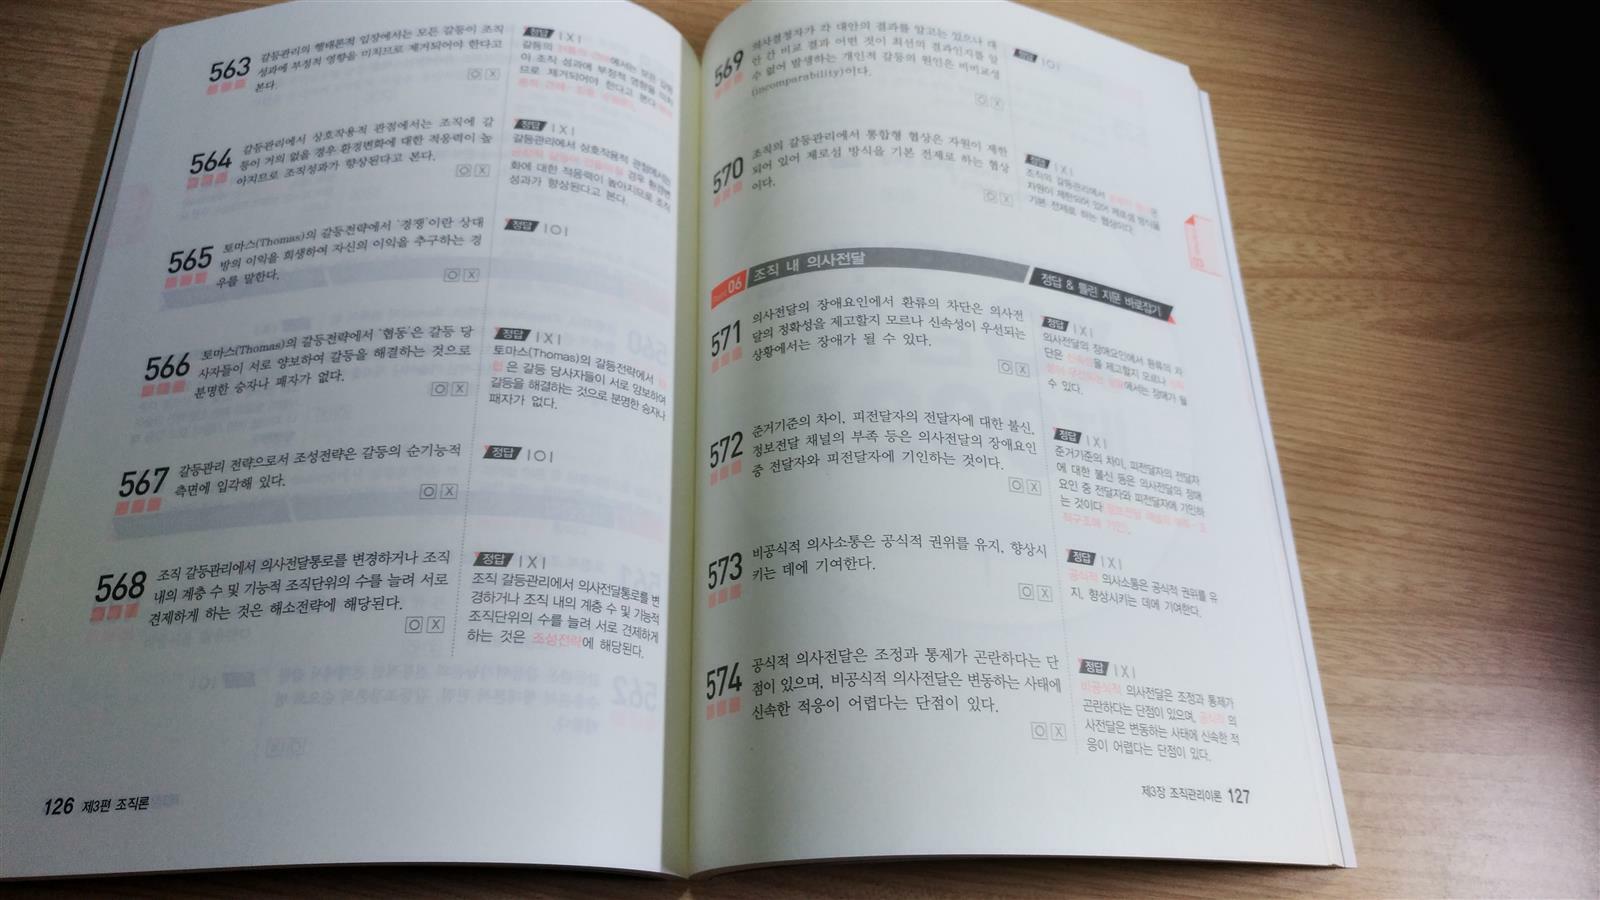 563
갈등관리의 행태론적 입장에서는 모든 갈등이 조직
성과에 부정적 영향을 미치므로 제거되어야 한다고
본다.
O X
정답 | X |
갈등의 에서는 모든 갈등
이 조직 성과에 부정적 영향을 미치
므로 제거되어야 한다고 본다
564
갈등관리에서 상호작용적 관점에서는 조직에 갈
등이 거의 없을 경우 환경변화에 대한 적응력이 높
아지므로 조직성과가 향상된다고 본다.
O X
정답 | X |
갈등관리에서 상호작용적 관점에서는
경우 환경변
화에 대한 적응력이 높아지므로 조직
성과가 향상된다고 본다.
565
토마스(Thomas)의 갈등전략에서 '경쟁'이란 상대
방의 이익을 희생하여 자신의 이익을 추구하는 경
우를 말한다.
O X
정답 | O |
566
토마스(Thomas)의 갈등전략에서 '협동'은 갈등 당
사자들이 서로 양보하여 갈등을 해결하는 것으로
분명한 승자나 패자가 없다.
O X
정답 | X |
토마스(Thomas)의 갈등전략에서
은 갈등 당사자들이 서로 양보하여
갈등을 해결하는 것으로 분명한 승자나
패자가 없다.
567
갈등관리 전략으로서 조성전략은 갈등의 순기능적
측면에 입각해 있다.
O X
정답 | O |
568
조직 갈등관리에서 의사전달통로를 변경하거나 조직
내의 계층 수 및 기능적 조직단위의 수를 늘려 서로
견제하게 하는 것은 해소전략에 해당된다.
O X
정답 | X |
조직 갈등관리에서 의사전달통로를 변
경하거나 조직 내의 계층 수 및 기능적
조직단위의 수를 늘려 서로 견제하게
하는 것은 조성전략에 해당된다.
126 제3편 조직론
569
의사결정자가 각 대안의 결과를 알고는 있으나 대
안 간 비교 결과 어떤 것이 최선의 결과인지를 알
수 없어 발생하는 개인적 갈등의 원인은 비비교성
(incomparability)이다.
O X
정답 | O |
570
조직의 갈등관리에서 통합형 협상은 자원이 제한
되어 있어 제로섬 방식을 기본 전제로 하는 협상
이다.
O X
정답 | X |
조직의 갈등관리에서
자원이 제한되어 있어 제로섬 방식을
기본 전제로 하는 협상이다.
06 조직 내 의사전달
정답 & 틀린 지문 바로잡기
571
의사전달의 장애요인에서 환류의 차단은 의사전
달의 정확성을 제고할지 모르나 신속성이 우선되는
상황에서는 장애가 될 수 있다.
O X
정답 | X |
의사전달의 장애요인에서 환류의 차
단은 신속성을 제고할지 모르나
에서는 장애가 될
수 있다.
572
준거기준의 차이, 피전달자의 전달자에 대한 불신,
정보전달 채널의 부족 등은 의사전달의 장애요인
중 전달자와 피전달자에 기인하는 것이다.
O X
정답 | X |
준거기준의 차이, 피전달자의 전달자
에 대한 불신 등은 의사전달의 장애
요인 중 전달자와 피전달자에 기인하
는 것이다
573
비공식적 의사소통은 공식적 권위를 유지, 향상시
키는 데에 기여한다.
O X
정답 | X |
공식적 의사소통은 공식적 권위를 유
지, 향상시키는 데에 기여한다.
574
공식적 의사전달은 조정과 통제가 곤란하다는 단
점이 있으며, 비공식적 의사전달은 변동하는 사태에
신속한 적응이 어렵다는 단점이 있다.
O X
정답 | X |
비공식적 의사전달은 조정과 통제가
곤란하다는 단점이 있으며, 공식적 의
사전달은 변동하는 사태에 신속한 적
응이 어렵다는 단점이 있다.
제3장 조직관리이론 127